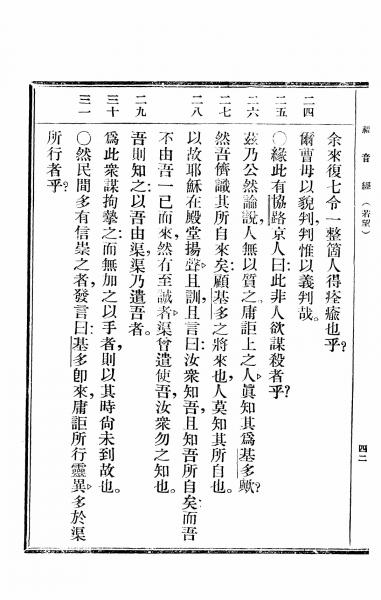 福音經 (若望)
四二
余來復七令一整箇人得痊瘉也乎?
二四 爾曹毋以貌判,判惟以義判哉。
二五 〇緣此有協路京人曰:此非人欲謀殺者乎?
二六 茲乃公然論說,人無以質之。庸詎上之人眞知其爲基多歟?
二七 然吾儕識其所自來矣;顧基多之將來也,人莫知其所自也。
二八 以故耶穌在殿堂揚聲且訓且言曰:汝衆知吾,且知吾所自矣;而吾
不由吾一己而來,然有至誠者渠曾遣使吾,汝衆勿之知也。
二九 吾則知之:以吾由渠,渠乃遣吾者。
三十 爲此衆謀拘摯之:而無加之以手者,則以其時尙未到故也。
三一 〇然民間多有信崇之者,發言曰:基多卽來,庸詎所行靈異多於渠
所行者乎?